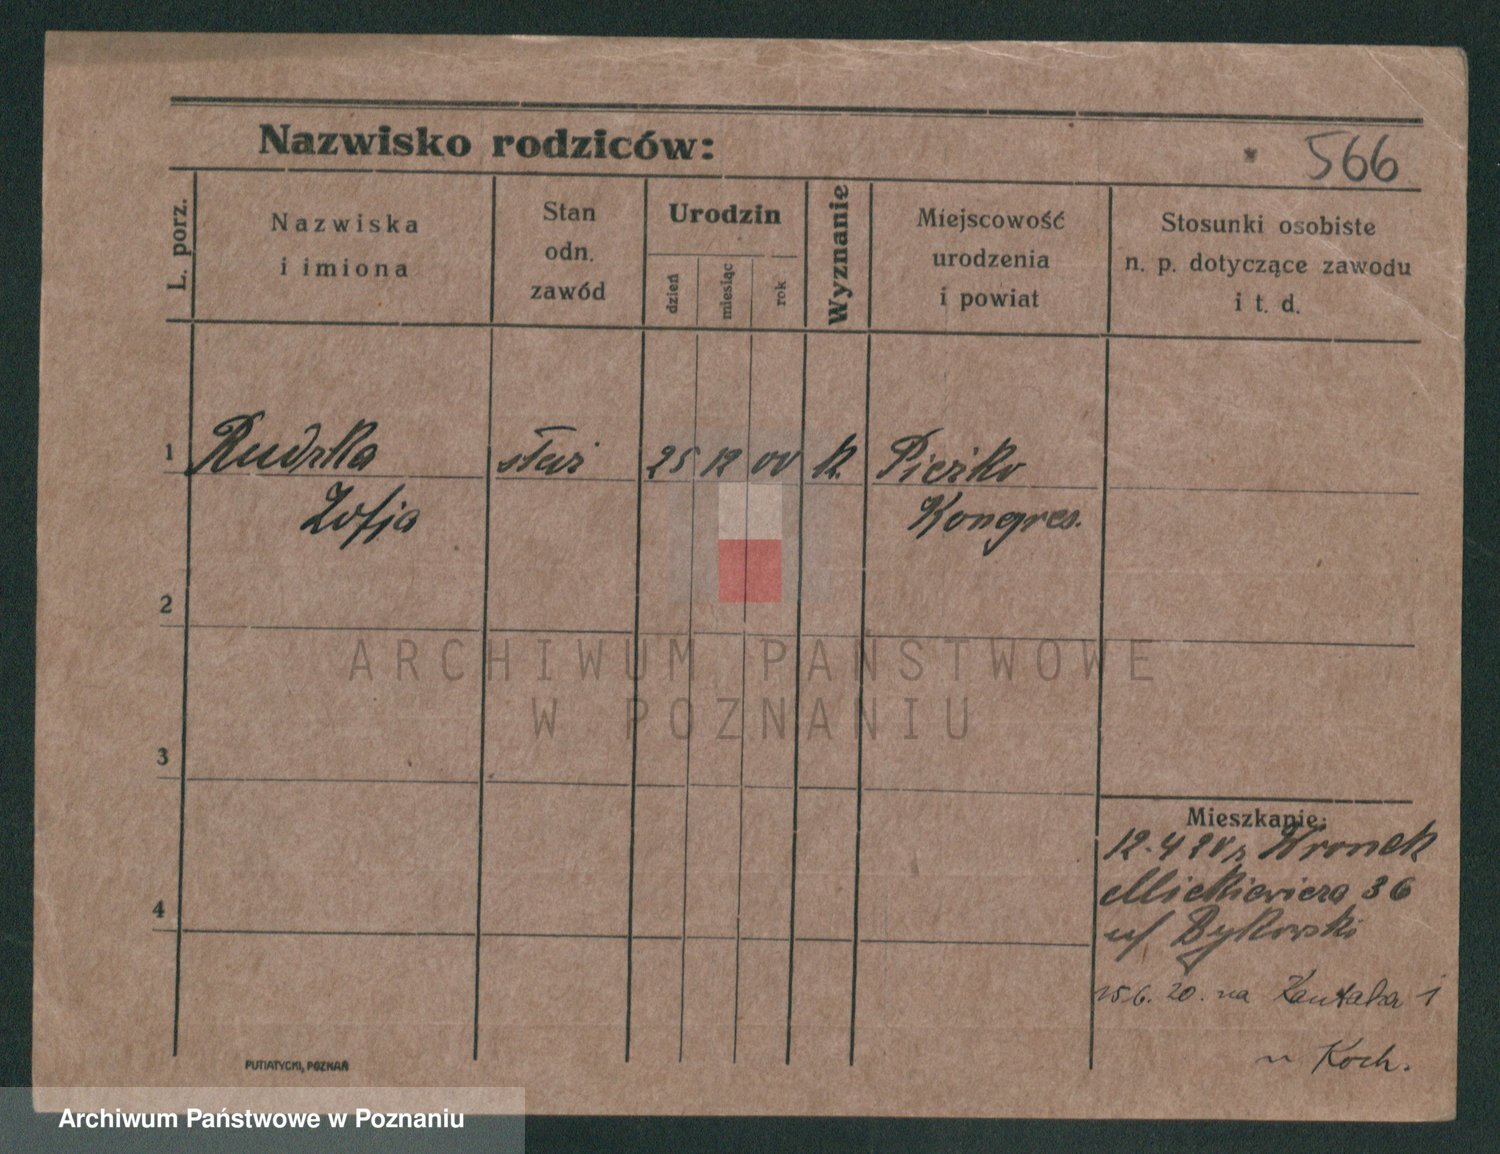 Nazwisko rodziców:
566
L. porz.
Nazwiska
i imiona
Stan
odn.
zawód
Urodzin
dzień
miesiąc
rok
Wyznanie
Miejscowość
urodzenia
i powiat
Stosunki osobiste
n. p. dotyczące zawodu
i t. d.
1
Rudzka
służ
25 12 00
k.
Zofja
Kongres.
2
ARCHIWUM PAŃSTWOWE
W POZNANIU
3
Mieszkanie:
12.4 20 r Wronek
Mickiewicza 36
4
u/ Bykowski
15.6.20. na Kantaka 1
u Koch.
PUTIATYCKI, POZNAŃ
Archiwum Państwowe w Poznaniu